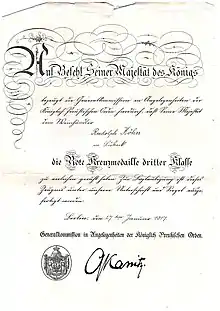 Auf Befehl Seiner Majestät des Königs
bezeugt die Generalkommission in Angelegenheiten der
Königlich Preußischen Orden hierdurch, daß Seine Majestät
dem Weinhändler
Rudolph Köhn
in Lübeck
die Rote Kreuzmedaille dritter Klasse
zu verleihen geruht haben. Zur Beglaubigung ist dieses
Zeugnis unter unserer Unterschrift und Siegel aus-
gefertigt worden.
Berlin, den 27ten Januar
Generalkommission in Angelegenheiten der Königlich Preußischen Orden.